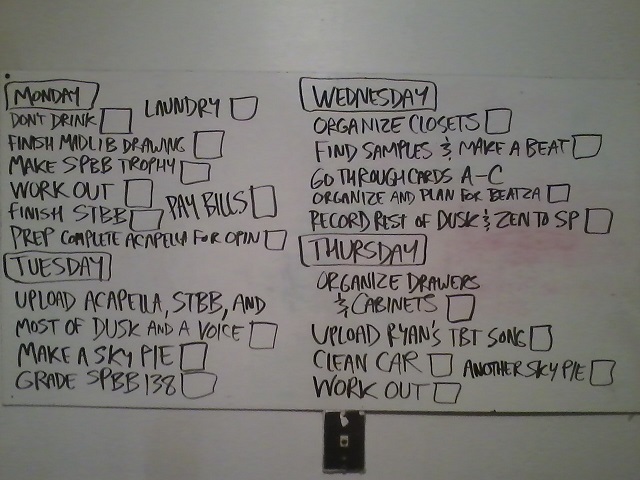 MONDAY
LAUNDRY
DON'T DRINK
FINISH MADLIB DRAWING
MAKE SPBB TROPHY
WORK OUT
PAY BILLS
FINISH STBB
PREP COMPLETE ACAPELLA FOR OPIN
TUESDAY
UPLOAD ACAPELLA, STBB, AND
MOST OF DUSK AND A VOICE
MAKE A SKY PIE
GRADE SPBB 138
WEDNESDAY
ORGANIZE CLOSETS
FIND SAMPLES & MAKE A BEAT
GO THROUGH CARDS A-C
ORGANIZE AND PLAN FOR BEATZA
RECORD REST OF DUSK & ZEN TO SP
THURSDAY
ORGANIZE DRAWERS
& CABINETS
UPLOAD RYAN'S TBT SONG
CLEAN CAR
ANOTHER SKY PIE
WORK OUT